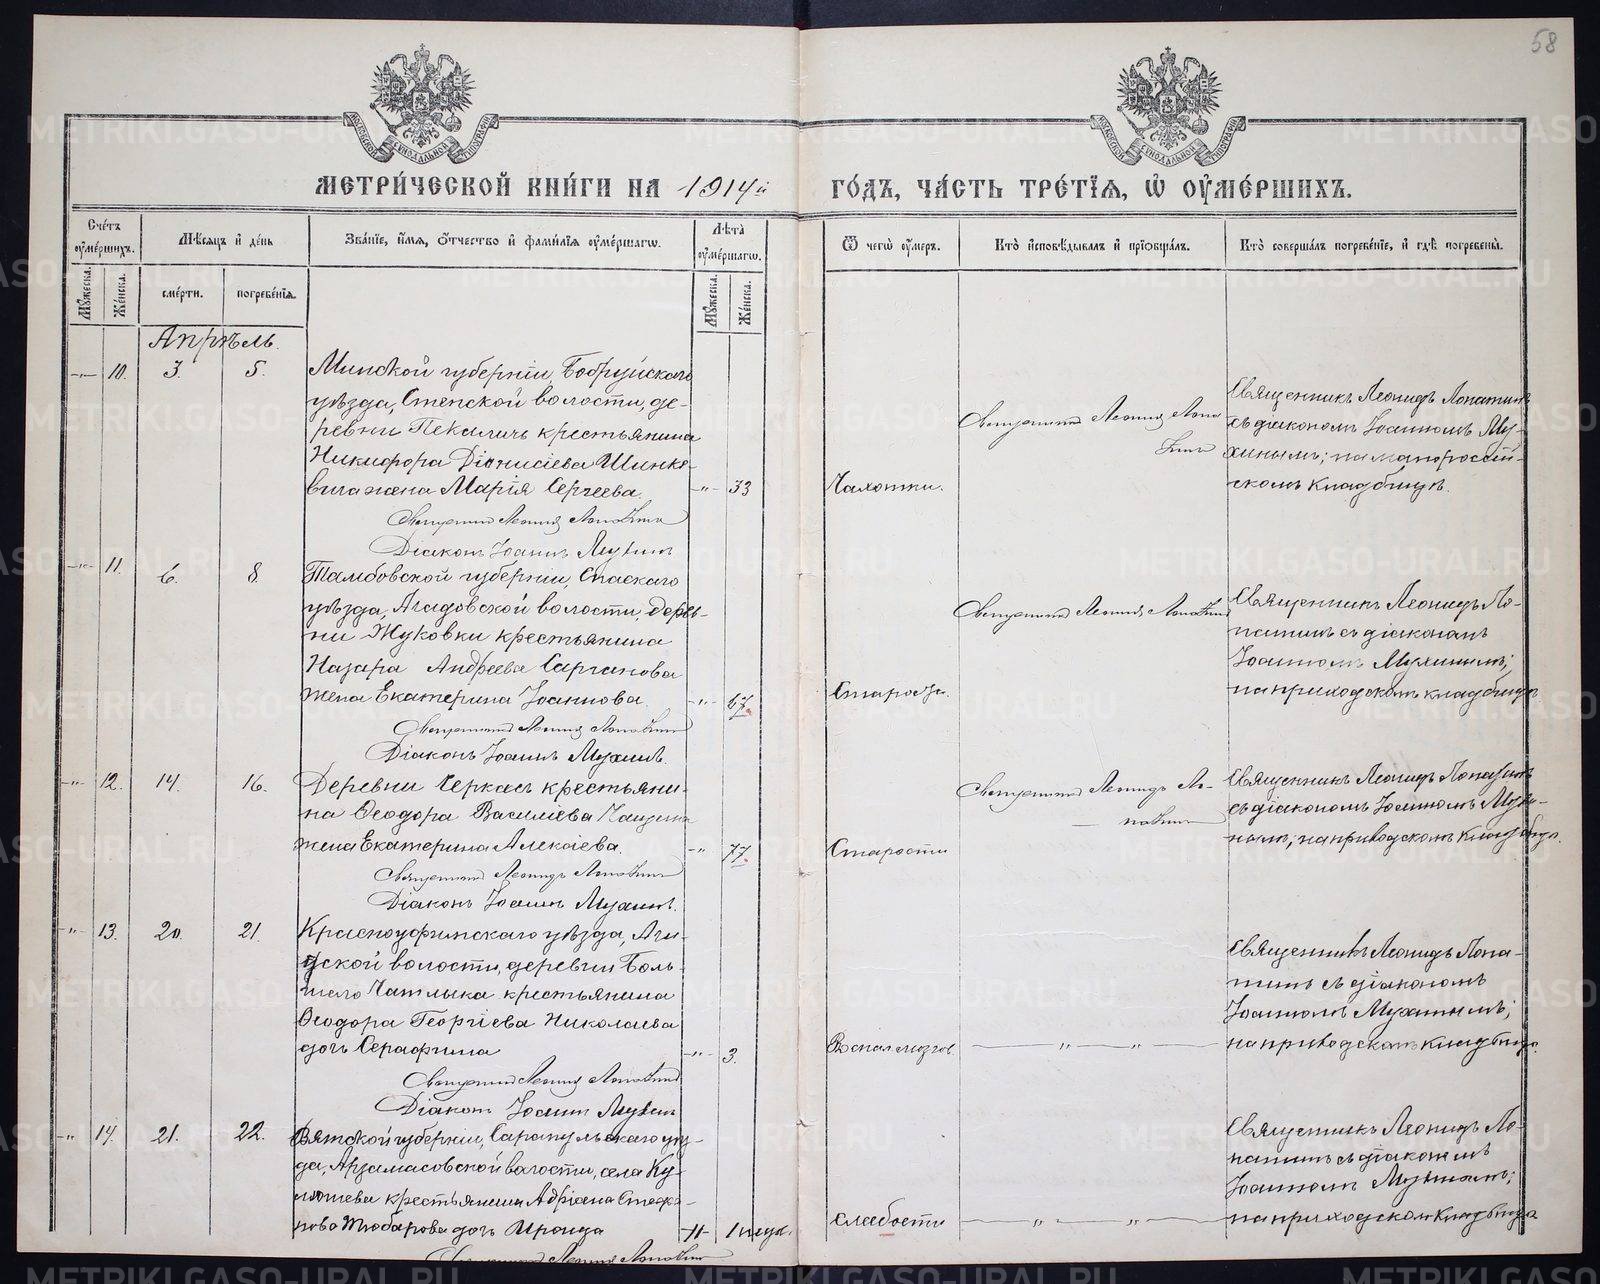 58
МЕТРИ́ЧЕСКОЙ КНИ́ГИ НА 1914й ГО́ДЪ, ЧА́СТЬ ТРЕ́ТІѦ, Ѡ҆ ОУ҆МЕ́РШИХЪ.
Сче́тъ оу҆ме́ршихъ.
Мѣ́сяцъ и҆ де́нь
Зва́нїе, и҆́мѧ, ѻ҆́тчество и҆ фами́лїѧ оу҆ме́ршагѡ.
Лѣ́та оу҆ме́ршагѡ.
Ѿ чегѡ̀ оу҆́меръ.
Кто̀ и҆сповѣ́дывалъ и҆ прїѡбща́лъ.
Кто̀ соверша́лъ погребе́нїе, и҆ гдѣ̀ погребены̀.
Мꙋ́жеска.
Же́нска.
сме́рти.
погребе́нїѧ.
Мꙋ́жеска.
Же́нска.
Апрѣль.
-"- 10. 3. 5. Минской губерніи, Бобруйскаго
уѣзда, Степской волости, де-
ревни Пекаличъ крестьянина
Никифора Діонисіева Шинке-
вича жена Марія Сергеева. -"- 33
Священникъ Леонидъ Лопатинъ
Діаконъ Іоаннъ Мухинъ
Чахотки.
Священникъ Леонидъ Лопа-
тинъ
Священникъ Леонидъ Лопатинъ
съ діакономъ Іоанномъ Му-
хинымъ; на
скомъ кладбищѣ.
-"- 11. 6. 8. Тамбовской губерніи, Спаскаго
уѣзда, Агадовской волости, дерев-
ни Жуковки крестьянина
Назара Андреева Сарганова
жена Екатерина Іоаннова. -"- 67.
Священникъ Леонидъ Лопатинъ
Діаконъ Іоаннъ Мухинъ.
Старости.
Священникъ Леонидъ Лопатинъ
Священникъ Леонидъ Ло-
патинъ съ діакономъ
Іоанномъ Мухинымъ;
на приходскомъ кладбищѣ
-"- 12. 14. 16. Деревни Черкасъ крестьяни-
на Ѳеодора Василіева
жена Екатерина Алексіева. -"- 77.
Священникъ Леонидъ Лопатинъ
Діаконъ Іоаннъ Мухинъ.
Старости
Священникъ Леонидъ Ло-
патинъ
Священникъ Леонидъ Лопатинъ
съ діакономъ Іоанномъ Мухи-
нымъ; на приходскомъ кладбищѣ.
-"- 13. 20. 21. Красноуфимскаго уѣзда, Ачи-
тской волости, деревни Боль-
шего Чатлыка крестьянина
Ѳеодора Георгіева Николаева
дочь Серафима -"- 3.
Священникъ Леонидъ Лопатинъ
Діаконъ Іоаннъ Мухинъ
Воспал. мозгов.
— " — " —
Священникъ Леонидъ Лопа-
тинъ съ діакономъ
Іоанномъ Мухинымъ;
на приходскомъ кладбищѣ.
-"- 14. 21. 22. Вятской губерніи, Сарапульскаго уѣз-
да, Арзамасовской волости, села
крестьянина Адріана Стефа-
нова дочь Ираида -"- 1 нед.
Священникъ Леонидъ Лопатинъ
слабости
— " — " —
Священникъ Леонидъ Ло-
патинъ съ діакономъ
Іоанномъ Мухинымъ;
на приходскомъ кладбищѣ
METRIKI.GASO-URAL.RU